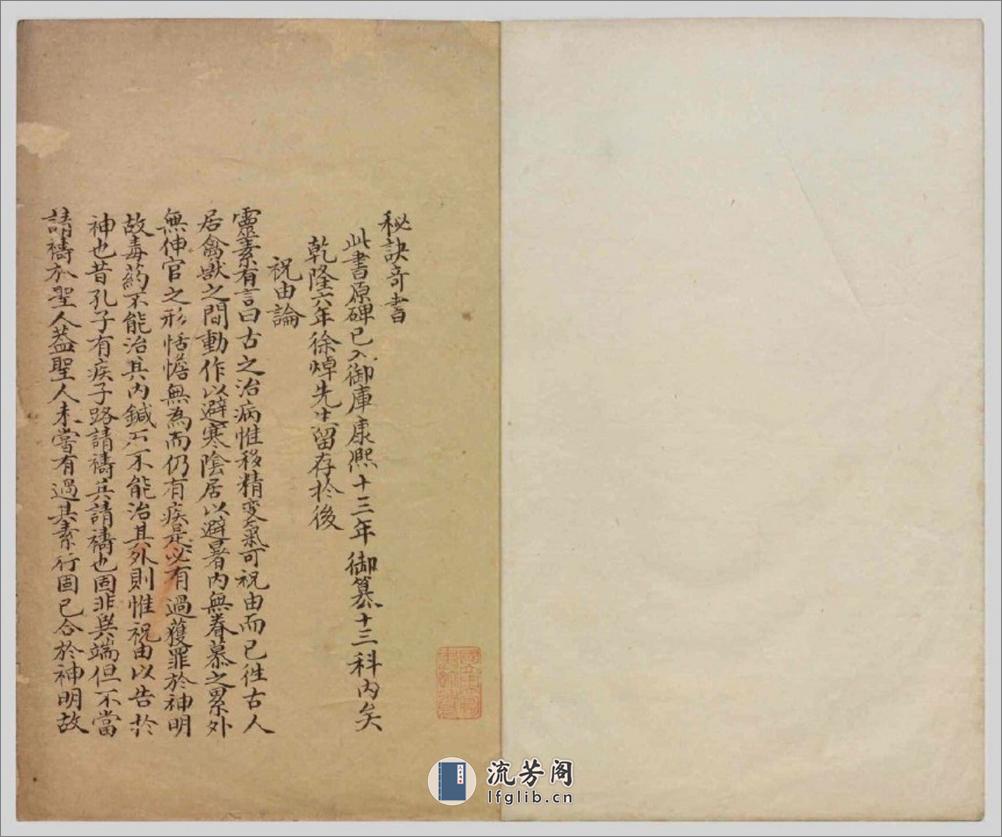 秘訣奇書
此書原碑已入御庫康熙十三年御纂十三科內矣
乾隆六年徐焯先生留存於後
祝由論
靈素有言曰古之治病惟移精變氣可祝由而已徃古人
居禽獸之間動作以避寒陰居以避暑內無眷慕之累外
無伸官之形恬憺無為而仍有疾是必有過獲罪於神明
故毒葯不能治其內鍼石不能治其外則惟祝由以告於
神也昔孔子有疾子路請禱其請禱也固非異端但不當
請禱於聖人葢聖人未嘗有過其素行固已合於神明故
流芳阁
lfglib.cn